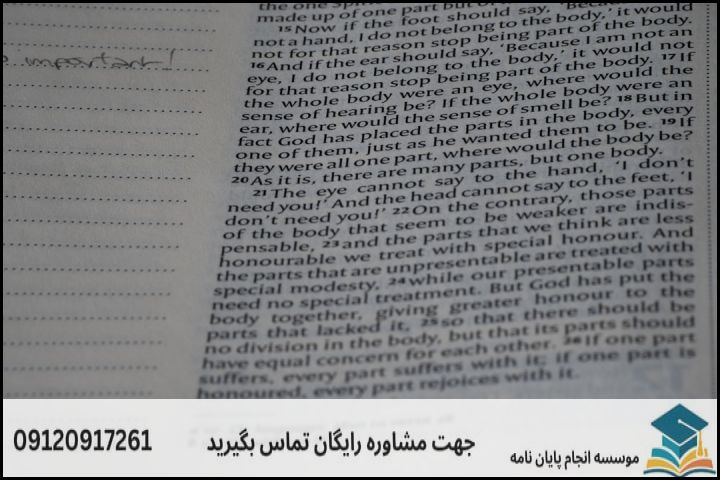 important!
the one
made up of one part but
15 Now if the foot should say, 'Because
not a hand, I do not belong to the body,' it would
not for that reason stop being part of the body.
16 And if the ear should say, 'Because I am not an
eye, I do not belong to the body,' it would not
for that reason stop being part of the body. 17 If
the whole body were an eye, where would the
sense of hearing be? If the whole body were an
ear, where would the sense of smell be? 18 But in
fact God has placed the parts in the body, every
one of them, just as he wanted them to be. 19 If
they were all one part, where would the body be?
20 As it is, there are many parts, but one body.
21 The eye cannot say to the hand, 'I don't
need you!' And the head cannot say to the feet, 'I
don't need you!' 22 On the contrary, those parts
of the body that seem to be weaker are indis-
pensable, 23 and the parts that we think are less
honourable we treat with special honour. And
the parts that are unpresentable are treated with
special modesty, 24 while our presentable parts
need no special treatment. But God has put the
body together, giving greater honour to the
parts that lacked it, 25 so that there should be
no division in the body, but that its parts should
have equal concern for each other. 26 If one part
suffers, every part suffers with it; if one part is
honoured, every part rejoices with it.
موسسه انجام پایان نامه
جهت مشاوره رایگان تماس بگیرید
09120917261